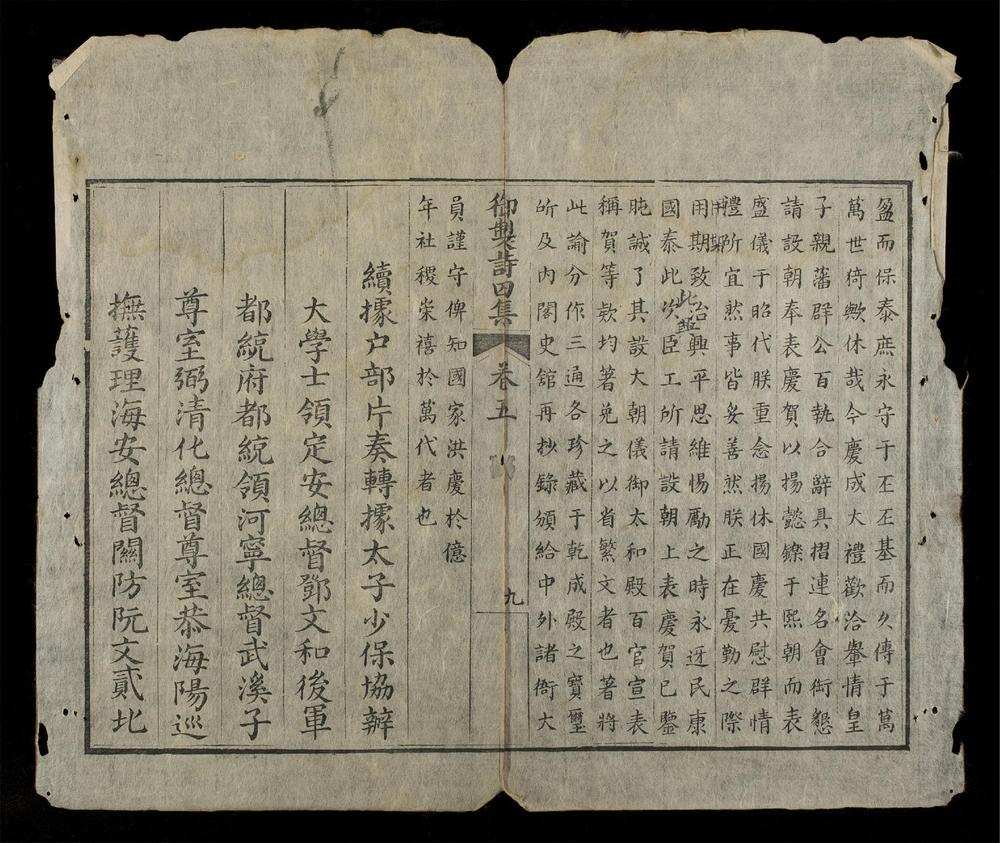 盈而保泰庶永守于丕丕基而久傳于萬
萬世猗歟休哉今慶成大禮歡洽轝情皇
子親藩群公百執合辭具摺連名會銜懇
請設朝奉表慶賀以揚懿鑠于熙朝而表
盛儀于昭代朕重念揚休國慶共慰群情
禮所宜然事皆妥善然朕正在憂勤之際
用期致治興平思維惕勵之時永迓民康
國泰此次臣工所請設朝上表慶賀已鑒
此
忱誠了其設大朝儀御太和殿百官宣表
稱賀等欵均著免之以省繁文者也著將
此諭分作三通各珍藏于乾成殿之寶璽
所及內閣史舘再抄錄頒給中外諸衙大
御製詩四集 卷五 九
員謹守俾知國家洪慶於億
年社稷崇禧於萬代者也
續據户部片奏轉據太子少保協辦
大學士領定安總督鄧文和後軍
都統府都統領河寧總督武溪子
尊室弼清化總督尊室恭海陽巡
撫護理海安總督關防阮文貳北